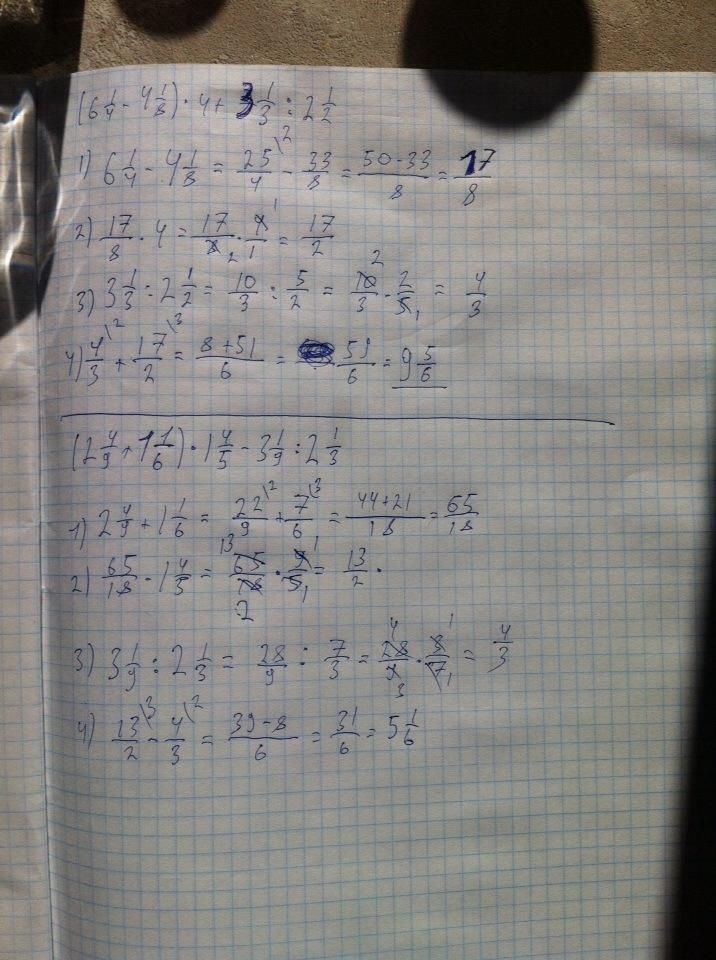 (6 1/4 - 4 1/8) · 4 + 3 1/3 : 2 1/2
1) 6 1/4 - 4 1/8 = 25/4 \2 - 33/8 = 50-33/8 = 17/8
2) 17/8 · 4 = 17/8 2 · 4/1 1 = 17/2
3) 3 1/3 : 2 1/2 = 10/3 : 5/2 = 10/3 2 · 2/5 1 = 4/3
4) 4/3 \2 + 17/2 \3 = 8+51/6 = 59/6 = 9 5/6
(2 4/9 + 1 1/6) · 1 4/5 - 3 1/9 : 2 1/3
1) 2 4/9 + 1 1/6 = 22/9 \2 + 7/6 \3 = 44+21/18 = 65/18
2) 65/18 · 1 4/5 = 13 65/18 2 · 9/5 1 1 = 13/2 ·
3) 3 1/9 : 2 1/3 = 28/9 : 7/3 = 4 28/9 3 · 3/7 1 1 = 4/3
4) 13/2 \3 - 4/3 \2 = 39-8/6 = 31/6 = 5 1/6